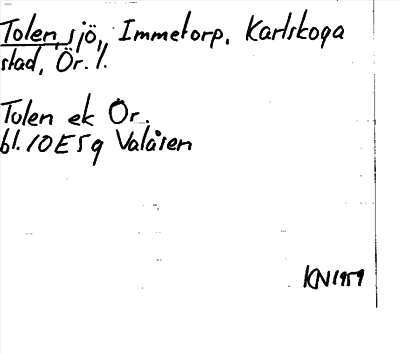 Tolen, sjö, Immetorp, Karlskoga
stad, Ör. l.
Tolen ek Ör.
bl. 10E5g Valåsen
KN 1959